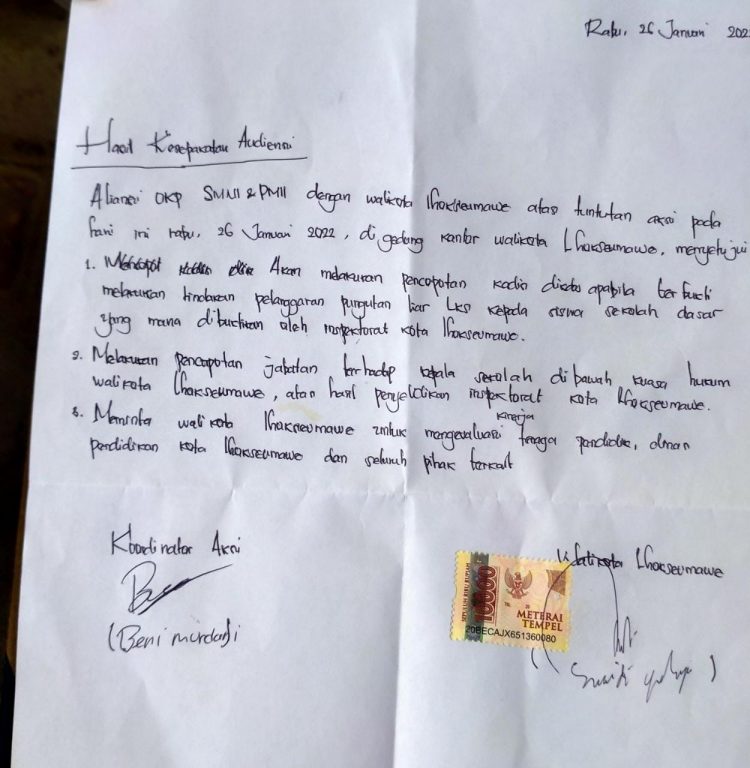 Rabu, 26 Januari 202
Hasil Kesepakatan Audiensi
Aliansi OKP SMNI & PMII dengan walikota lhokseumawe atas tuntutan aksi pada
hari ini rabu, 26 Januari 2022, di gedung kantor walikota Lhokseumawe, menyetujui
1. Akan melakukan pencopotan kadis disdas apabila terbukti
melakukan tindakan pelanggaran pungutan liar LKS kepada siswa sekolah dasar
yang mana dibuktikan oleh inspektorat kota lhokseumawe.
2. Melakukan pencopotan jabatan terhadap kepala sekolah dibawah kuasa hukum
walikota lhokseumawe, atas hasil penyelidikan inspektorat kota lhokseumawe.
kinerja
3. Meminta walikota lhokseumawe untuk mengevaluasi tenaga pendidik, dinas
pendidikan kota lhokseumawe dan seluruh pihak terkait
Koordinator Aksi
(Beni murdadi
Walikota Lhokseumawe
SEPULUH RIBU RUPIAH
10000
METERAI
TEMPEL
20BECAJX651360080